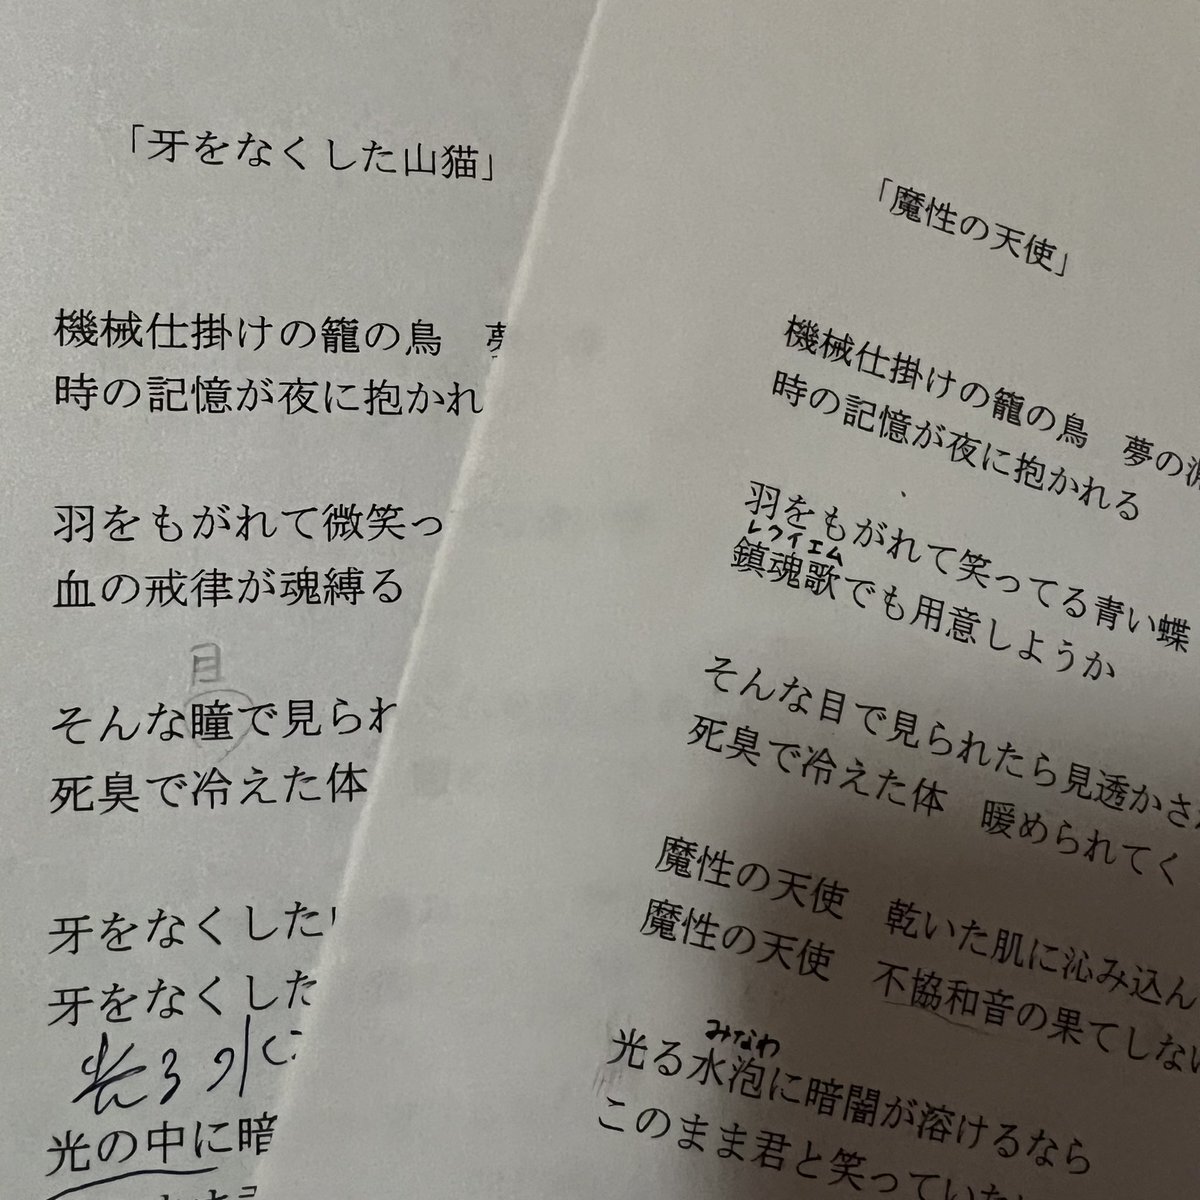 「牙をなくした山猫」
機械仕掛けの籠の鳥
時の記憶が夜に抱かれ
羽をもがれて微笑っ
血の戒律が魂縛る
目
そんな瞳で見られ
死臭で冷えた体
牙をなくした
牙をなくした
光る水
光の中に暗
「魔性の天使」
機械仕掛けの籠の鳥　夢の
時の記憶が夜に抱かれる
羽をもがれて笑ってる青い蝶
レクイエム
鎮魂歌でも用意しようか
そんな目で見られたら見透かされ
死臭で冷えた体　暖められてく
魔性の天使　乾いた肌に沁み込ん
魔性の天使　不協和音の果てしない
みなわ
光る水泡に暗闇が溶けるなら
このまま君と笑っていた